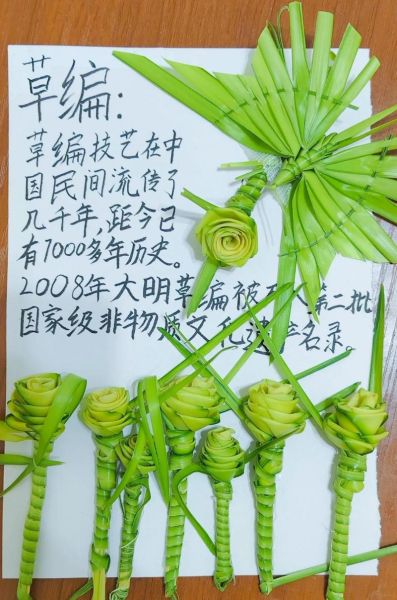 草编:
草编技艺在中
国民间流传了
几千年,距今已
有7000多年历史。
2008年大明草编被列入第二批
国家级非物质文化遗产名录。